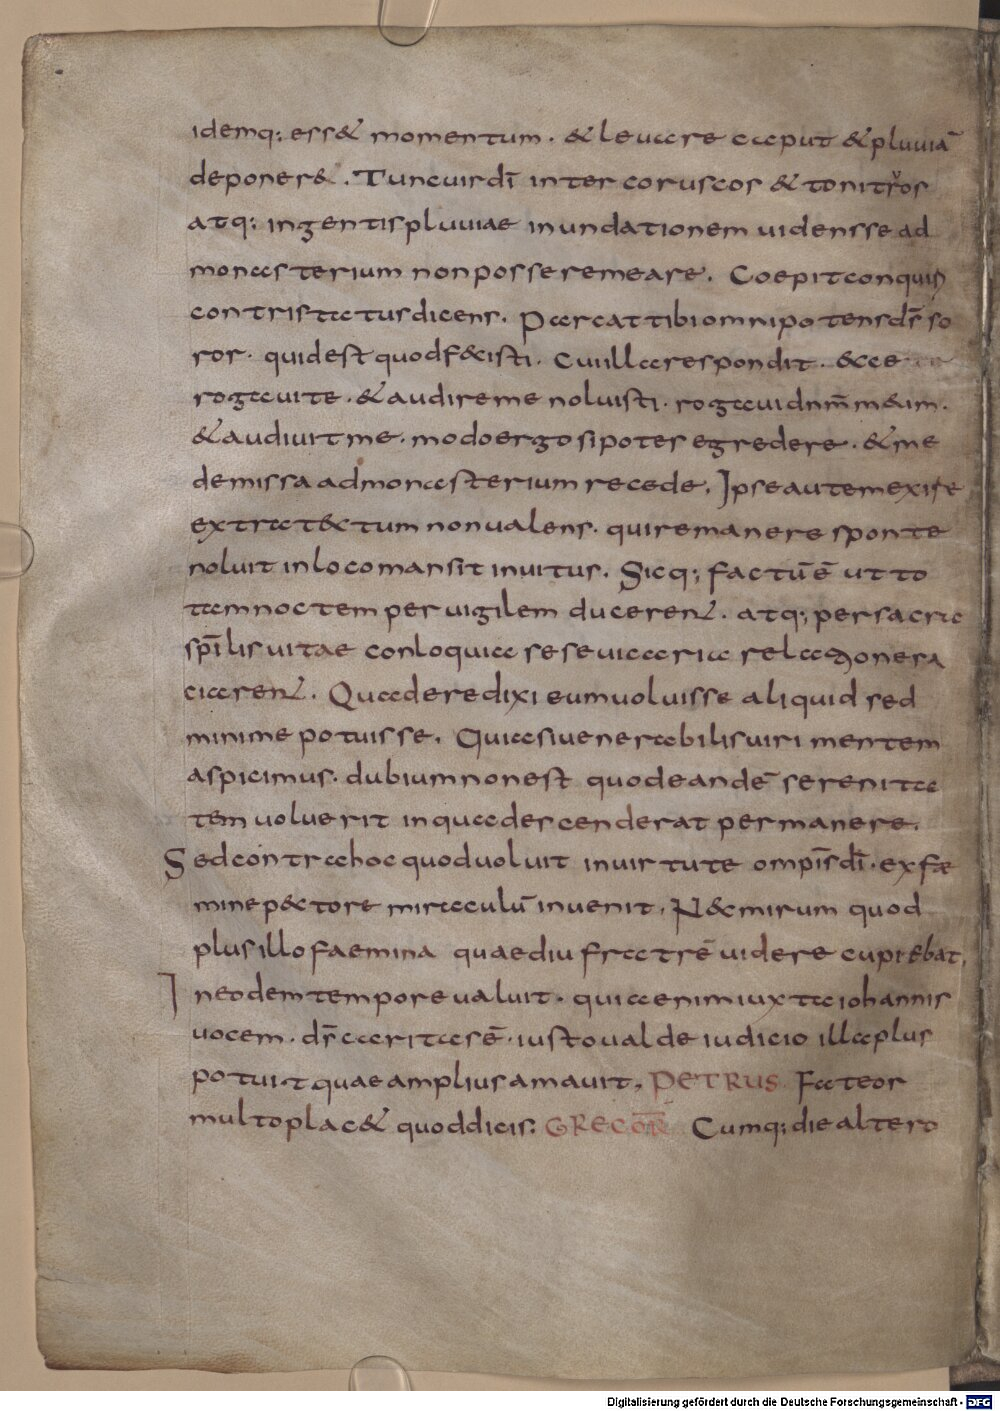 idemq; ess& momentum. & leuare caput & pluuiā
deponer&. Tunc uir dī inter coruscos & tonitrǒs
atq; ingentis pluuiae inundationem uidens se ad
monasterium non posse remeare. Coepit conquis
contristatus dicens. Parcat tibi omnipotens ds̄ so
ror. quid est quod f&isti. Cui illa respondit. &cce
rogaui te. & audire me noluisti. rogaui dn̄m m&im.
& audiuit me. modo ergo si potes egredere. & me
demissa ad monasterium recede. Ipse autem exire
extra t&ctum non ualens. qui remanere sponte
noluit in loco mansit inuitus. Sicq; factū ē ut to
tam noctem peruigilem ducerent. atq; per sacra
spīlis uitae conloquia sese uicaria relatione ra
ciarent. Qua de re dixi eum uoluisse aliquid sed
minime potuisse. Quia si uenerabilis uiri mentem
aspicimus. dubium non est quod eandē serenita
tem uoluerit in qua descenderat permanere.
Sed contra hoc quod uoluit in uirtute omp̄is dī. ex fæ
mine p&ctore miraculū inuenit. N&c mirum quod
plus illo faemina quae diu fratrē uidere cupiebat,
In eodem tempore ualuit. quia enim iuxta iohannis
uocem. ds̄ caritas ē. iusto ualde iudicio illa plus
potuit quae amplius amauit. PETRUS Fateor
multo plac& quod dicis: GREGOR̄ Cumq; die altero
Digitalisierung gefördert durch die Deutsche Forschungsgemeinschaft - DFG